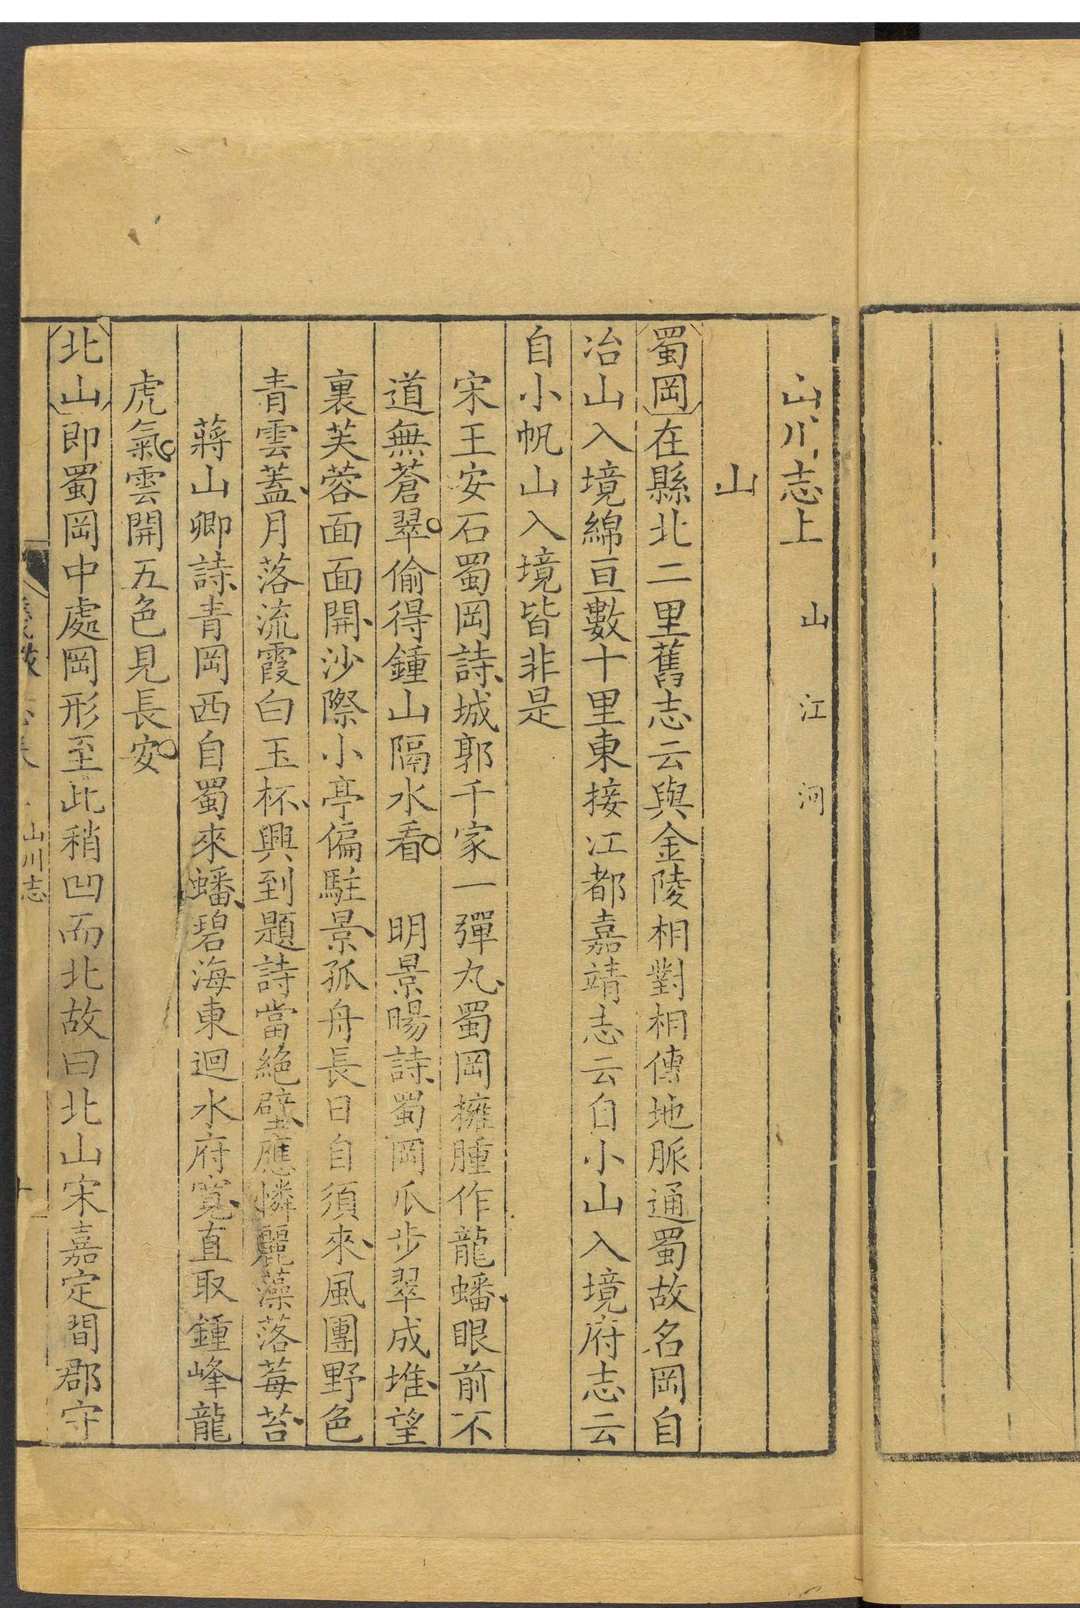 山川志上 山 江 河
山
蜀岡在縣北二里舊志云與金陵相對相傳地脈通蜀故名岡自
冶山入境綿亘數十里東接江都嘉靖志云自小山入境府志云
自小帆山入境皆非是
宋王安石蜀岡詩城郭千家一彈丸蜀岡擁腫作龍蟠眼前不
道無蒼翠偷得鍾山隔水看 明景暘詩蜀岡瓜步翠成堆望
裏芙蓉面面開沙際小亭偏駐景孤舟長日自須來風團野色
青雲蓋月落流霞白玉杯興到題詩當絕壁應憐麗藻落莓苔
蔣山卿詩青岡西自蜀來蟠碧海東迴水府寬直取鍾峰龍
虎氣雲開五色見長安
北山即蜀岡中處岡形至此稍凹而北故曰北山宋嘉定間郡守
山川志